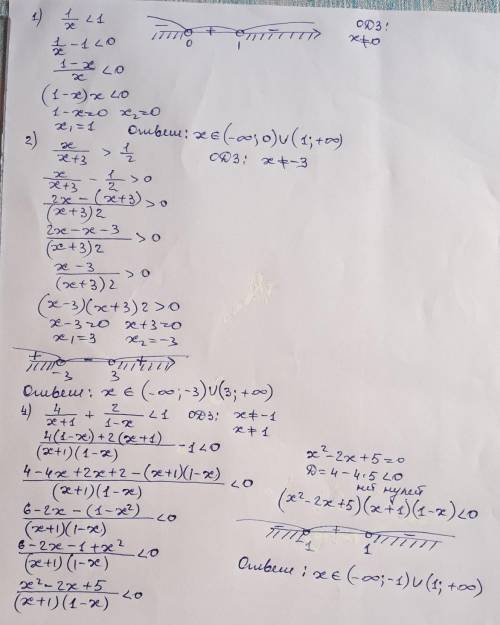 1) 1/x < 1
ОДЗ:
x≠0
− + −
0 1
1/x − 1 < 0
(1−x)/x < 0
(1−x)x < 0
1−x=0 x₂=0
x₁=1 Ответ: x ∈ (−∞; 0) ∪ (1; +∞)
2) x/(x+3) > 1/2 ОДЗ: x ≠ −3
x/(x+3) − 1/2 > 0
(2x − (x+3))/((x+3)2) > 0
(2x − x − 3)/((x+3)2) > 0
(x−3)/((x+3)2) > 0
(x−3)(x+3)2 > 0
x−3=0 x+3=0
x₁=3 x₂=−3
+ − +
−3 3
Ответ: x ∈ (−∞; −3) ∪ (3; +∞)
4) 4/(x+1) + 2/(1−x) < 1 ОДЗ: x≠−1
x≠1
(4(1−x)+2(x+1))/((x+1)(1−x)) −1<0
(4−4x+2x+2−(x+1)(1−x))/((x+1)(1−x)) < 0
(6−2x−(1−x²))/((x+1)(1−x)) < 0
(6−2x−1+x²)/((x+1)(1−x)) < 0
(x²−2x+5)/((x+1)(1−x)) < 0
x²−2x+5=0
D=4−4·5<0
нет нулей
(x²−2x+5)(x+1)(1−x)<0
− + −
−1 1
Ответ: x ∈ (−∞; −1) ∪ (1; +∞)